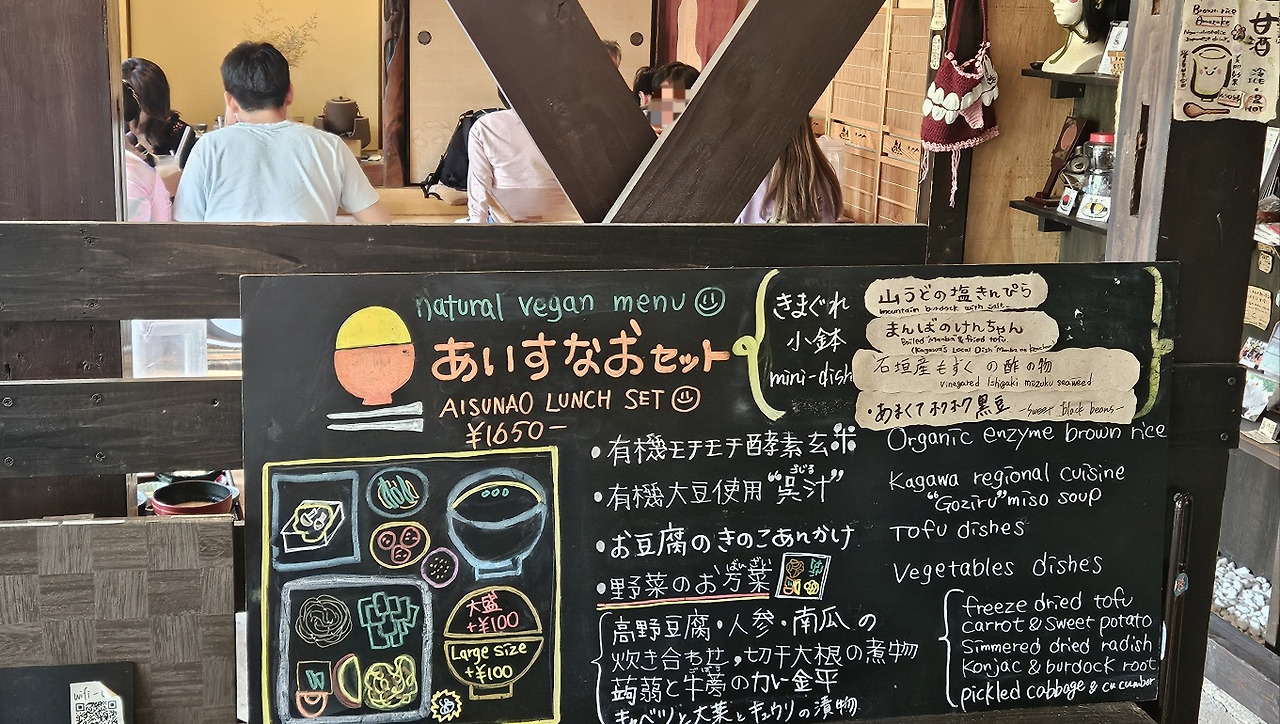 natural vegan menu
あいすなおセット
AISUNAO LUNCH SET
¥1650-
きまぐれ
小鉢
mini-dish
山うどの塩きんぴら
mountain burdock with salt
まんばのけんちゃん
Boiled Manba & fried tofu
石垣産もずくの酢の物
Vinegared Ishigaki mozuku seaweed
・あまくてホクホク黒豆 -Sweet black beans-
・有機モチモチ酵素玄米
Organic enzyme brown rice
ごじる
・有機大豆使用“呉汁”
Kagawa regional cuisine
“Goziru” miso soup
・お豆腐のきのこあんかけ
Tofu dishes
ばんざい
・野菜のお万菜
Vegetables dishes
高野豆腐・人参・南瓜の
炊き合わせ,切干大根の煮物
蒟蒻と牛蒡のカレー金平
キャベツと大葉とキュウリの漬物
freeze dried tofu
carrot & sweet potato
Simmered dried radish
Konjac & burdock root
pickled cabbage & cucumber
大盛
+¥100
Large size
+¥100
wifi
Brown rice
Amazake
甘酒
冷
ICE